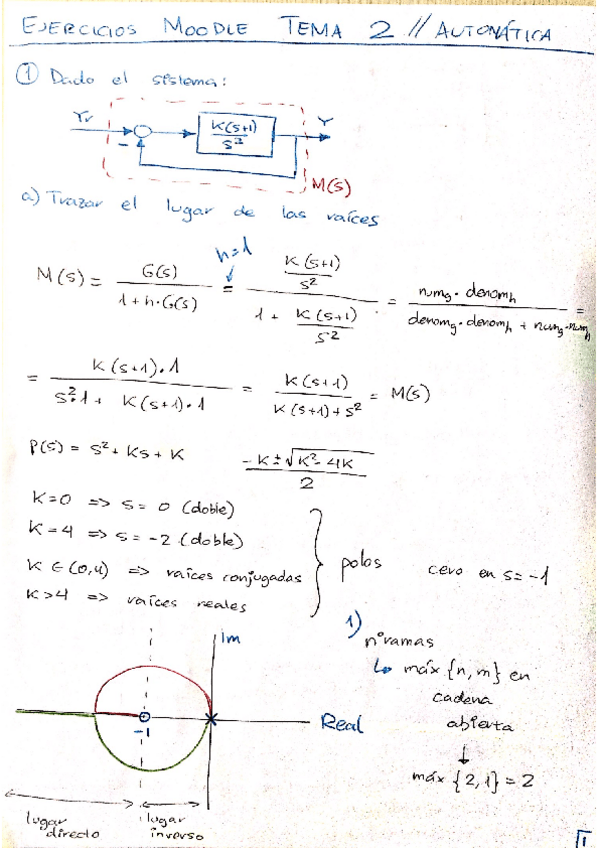 EJERCICIOS MOODLE TEMA 2 // AUTOMÁTICA
① Dado el sistema:
Yr
K(s+1)
s²
Y
-
M(s)
a) Trazar el lugar de las raíces
h=1
M(s) = G(s) / 1+h·G(s) = K(s+1)/s² / 1 + K(s+1)/s² = num_g · denom_h / denom_g · denom_h + num_g · num_h =
= K(s+1)·1 / s²·1 + K(s+1)·1 = K(s+1) / K(s+1)+s² = M(s)
P(s) = s² + Ks + K     -K ± √K²-4K / 2
K=0 => s= 0 (doble)
K=4 => s= -2 (doble)
K ∈ (0,4) => raíces conjugadas
K>4 => raíces reales
polos
cero en s=-1
1)
nº ramas
↳ máx {n, m} en
cadena
abierta
↓
máx {2,1} = 2
Im
Real
-1
lugar directo
lugar inverso
1